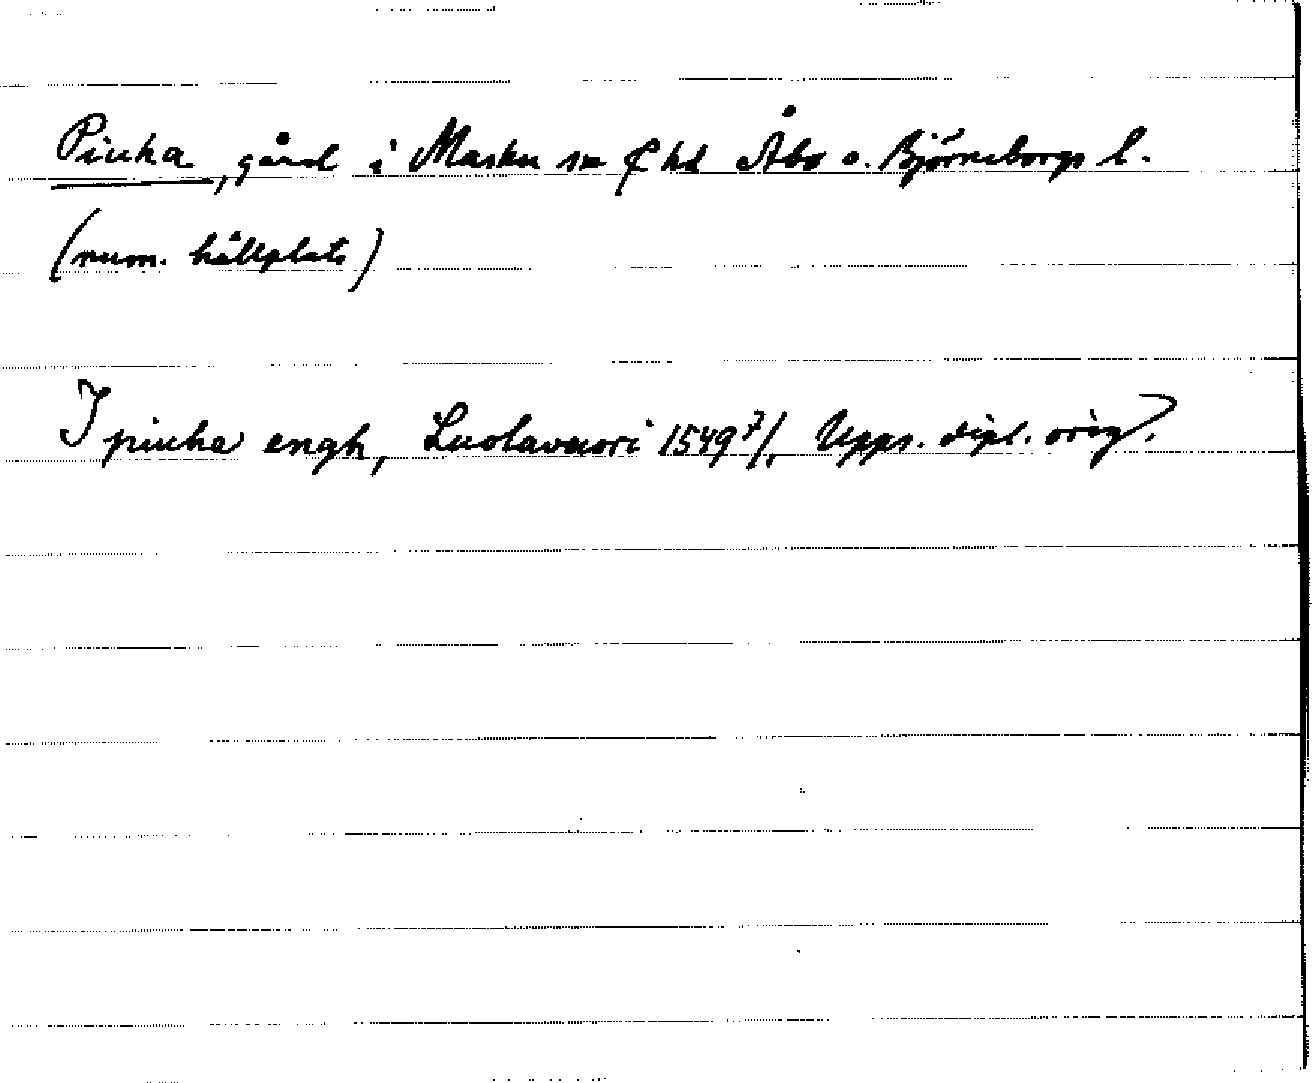 Piuha, gård i Masku sn ₵ hd Åbo o. Björneborgs l.
(num. hållplats)
I piuha engh, Luolavuori 1549 7/1, Upps. dipl. orig.